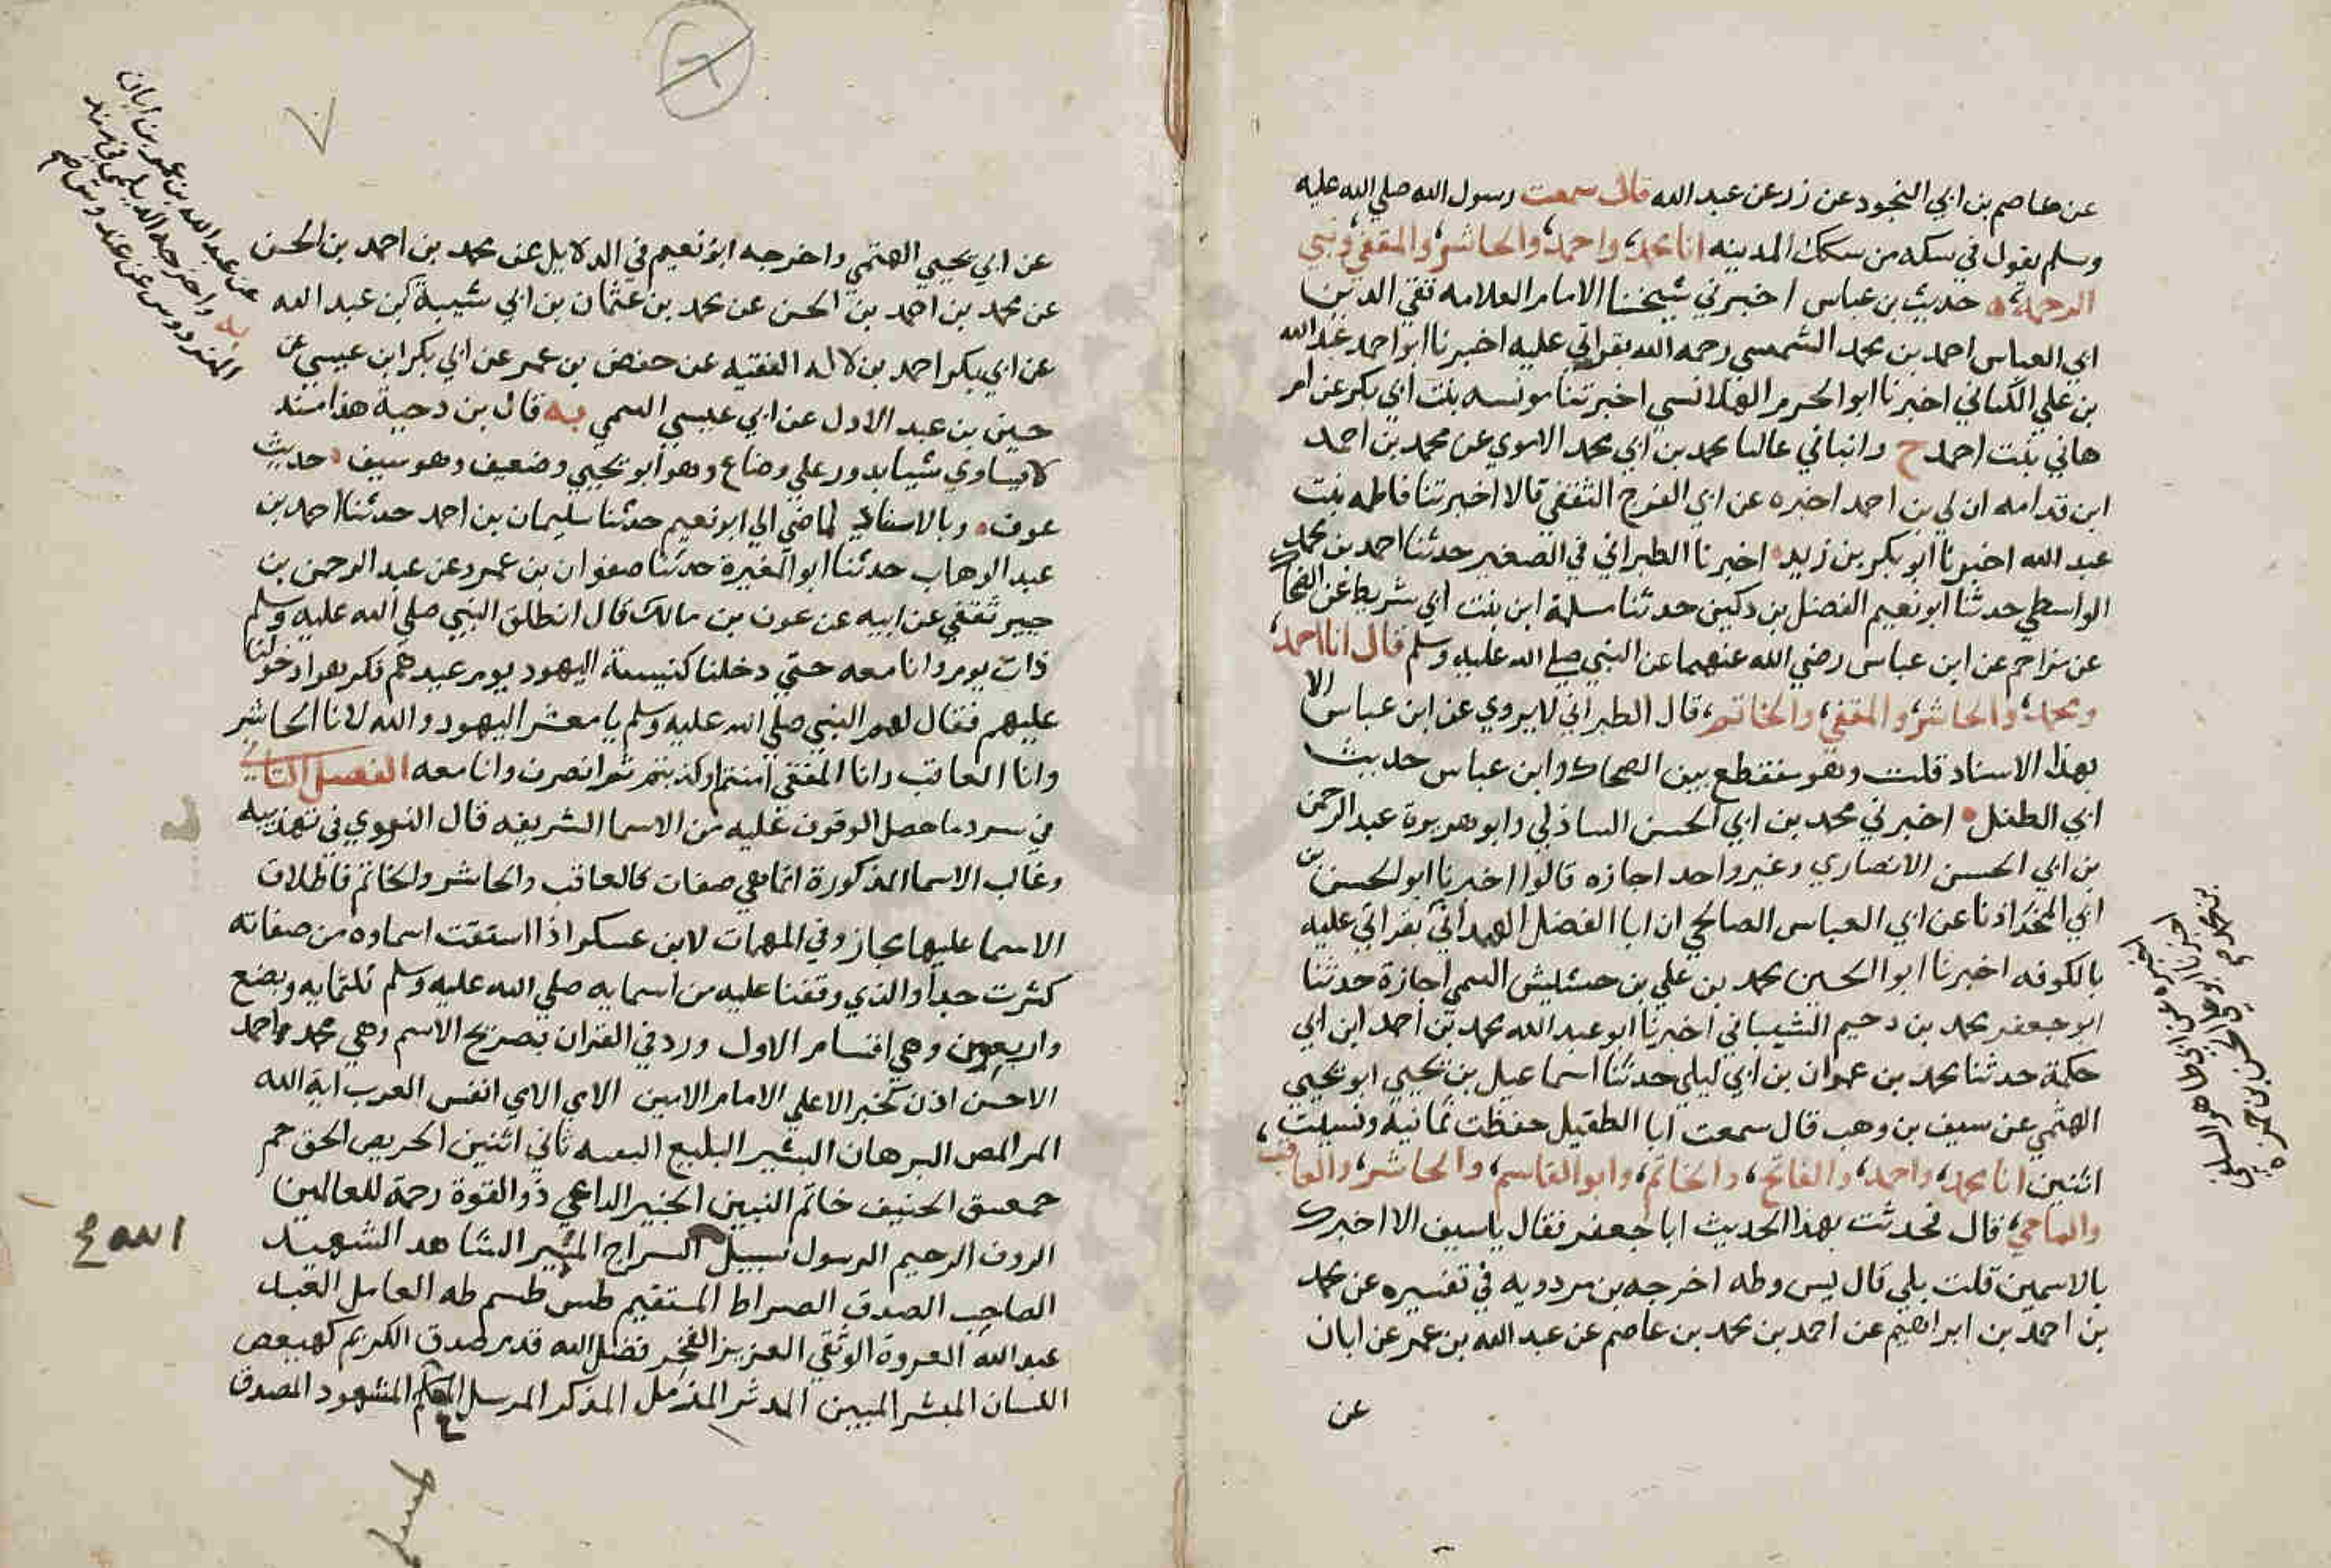 عن عاصم بن ابي النجود عن زر عن عبد الله قال سمعت رسول الله صلي الله عليه
وسلم يقول في سكه من سكك المدينه انا محمد، واحمد، والحاشر، والمقفي، ونبي
الرحمة، حديث بن عباس اخبرني شيخنا الامام العلامه تقي الدين
ابي العباس احمد بن محمد الشمسي رحمه الله بقراتي عليه اخبرنا ابو احمد عبد الله
بن علي الكناني اخبرنا ابو الحرم القلانسي اخبرتنا مونسه بنت ابي بكر عن ام
هاني بنت احمد ح وانباني عاليا محمد بن ابي محمد الاموي عن محمد بن احمد
ابن قدامه ان لي بن احمد اخبره عن ابي الفرج الثقفي قالا اخبرتنا فاطمه بنت
عبد الله اخبرنا ابو بكر بن زيد اخبرنا الطبراني في الصغير حدثنا احمد بن محمد
الواسطي حدثنا ابو نعيم الفضل بن دكين حدثنا سلمة ابن بنت ابي شريط عن الضحاك
عن مزاحم عن ابن عباس رضي الله عنهما عن النبي صلي الله عليه وسلم قال انا احمد،
ومحمد، والحاشر، والمقفي، والخاتم، قال الطبراني لا يروي عن ابن عباس الا
بهذا الاسناد قلت وهو منقطع بين الضحاك وابن عباس حديث
ابي الطفل اخبرني محمد بن ابي الحسن الساذلي وابو هويوة عبد الرحمن
بن ابي الحسن الانصاري وغير واحد اجازه قالوا اخبرنا ابو الحسن بن
ابي المجد اذنا عن ابي العباس الصالحي ان ابا الفضل الهمداني بقراتي عليه
بالكوفه اخبرنا ابو الحسين محمد بن علي بن حشليش التيمي اجازة حدثنا
ابو جعفر محمد بن دحيم الشيباني اخبرنا ابو عبد الله محمد بن احمد ابن ابي
حكمة حدثنا محمد بن عمران بن ابي ليلي حدثنا اسماعيل بن يحيي ابو يحيي
الهتمي عن سيف بن وهب قال سمعت ابا الطفيل حفظت ثمانية ونسيت،
اثنين انا محمد، واحمد، والفاتح، والخاتم، وابو القاسم، والحاشر، والعاقب
والماحي، قال فحدثت بهذا الحديث ابا جعفر فقال ياسيف الا اخبرك
بالاسمين قلت بلي قال يس وطه اخرجه بن مردويه في تفسيره عن محمد
بن احمد بن ابراهيم عن احمد بن محمد بن عاصم عن عبد الله بن عمر عن ابان
عن
عن ابي يحيي الهتمي واخرجه ابو نعيم في الدلايل عن محمد بن احمد بن الحسن
عن محمد بن احمد بن الحسن عن محمد بن عثمان بن ابي شيبة عن عبد الله
عن ابي بكر احمد بن لاله الفقيه عن حفص بن عمر عن ابي بكر ابن عيسي عن
حسين بن عبد الاول عن ابي عيسي التيمي به قال بن دحية هذا سند
لا يساوي شيبا يدور علي وضاع وهو ابو يحيي وضعيف وهو سيف حديث
عوف وبالاسناد الماضي الي ابو نعيم حدثنا سليمان بن احمد حدثنا احمد بن
عبد الوهاب حدثنا ابو المغيرة حدثنا صفوان بن عمرو عن عبد الرحمن بن
جبير ثقفي عن ابيه عن عوف بن مالك قال انطلق النبي صلي الله عليه وسلم
ذات يوم وانا معه حتي دخلنا كنيسة اليهود يوم عيدهم فكرهوا دخولنا
عليهم فقال لهم النبي صلي الله عليه وسلم يا معشر اليهود والله لانا الحاشر
وانا العاقب وانا المقفي امنتم او كذبتم ثم انصرف وانا معه الفصل الثاني
في سرد ما حصل الوقوف عليه من الاسما الشريفه قال النووي في تهذيبه
وغالب الاسما المذكورة انما هي صفات كالعاقب والحاشر والخاتم فاطلاق
الاسما عليها مجاز وفي المهمات لابن عسكر اذا استقت اسماوه من صفاته
كثرت جدا والذي وقفنا عليه من اسمايه صلي الله عليه وسلم ثلثمايه وبضع
واربعون وهي اقسام الاول ورد في القران بصريح الاسم وهي محمد واحمد
الاحسن اذن خير الاعلي الامام الامين الامي الامي انفس العرب اية الله
المر المص البرهان البشير البليغ البينه ثاني اثنين الحريص الحق حم
حمعسق الحنيف خاتم النبيين الخبير الداعي ذو القوة رحمة للعالمين
الروف الرحيم الرسول سبيل السراج المنير الشاهد الشهيد
الصاحب الصدق الصراط المستقيم طس طسم طه العامل العبد
عبد الله العروة الوثقي العزيز الفجر فضل الله قدم صدق الكريم كهيعص
اللسان المبشر المبين المدثر المزمل المذكر المرسل المشهود المصدق
عن عبد الله بن عمر بن ابان
به واخرجه الديلمي في مسند